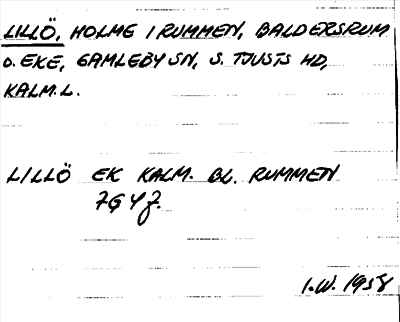 LILLÖ, HOLME I RUMMEN, BALDERSRUM
O. EKE, GAMLEBY SN, S. TJUSTS HD,
KALM. L.
LILLÖ EK KALM. BL. RUMMEN
7G 4 J.
I.W. 1958